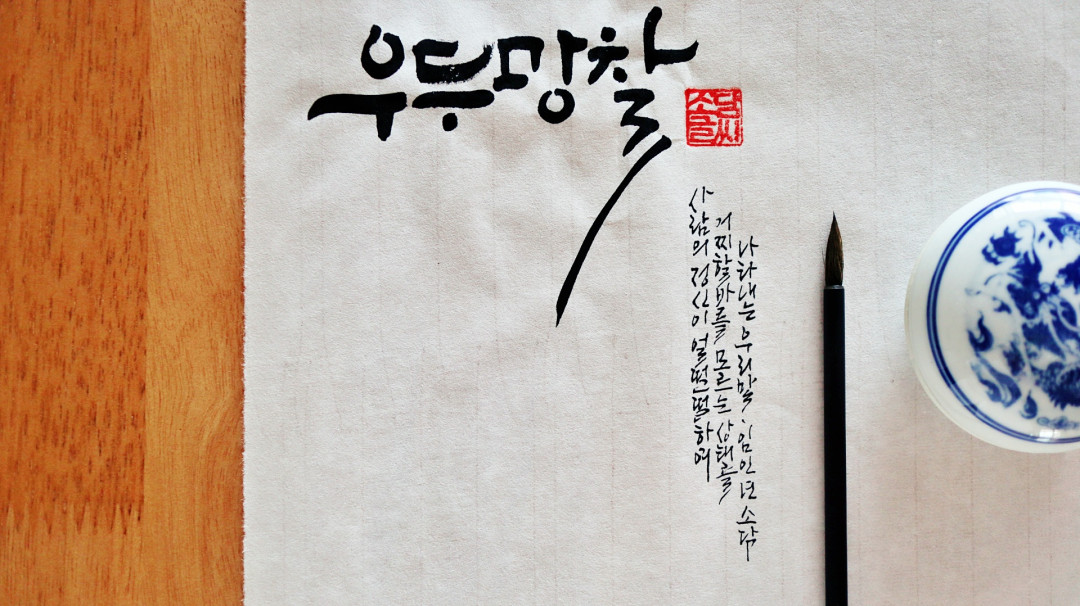 우두망찰
소담
글씨
사람의 정신이 얼떨떨하여
어찌할바를 모르는 상태를
나타내는 우리말. 임인년 소담